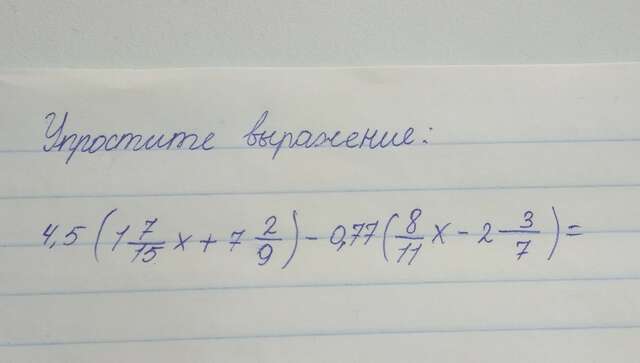 Упростите выражение:
4,5(1 7/15 x + 7 2/9) - 0,77(8/11 x - 2 3/7) =